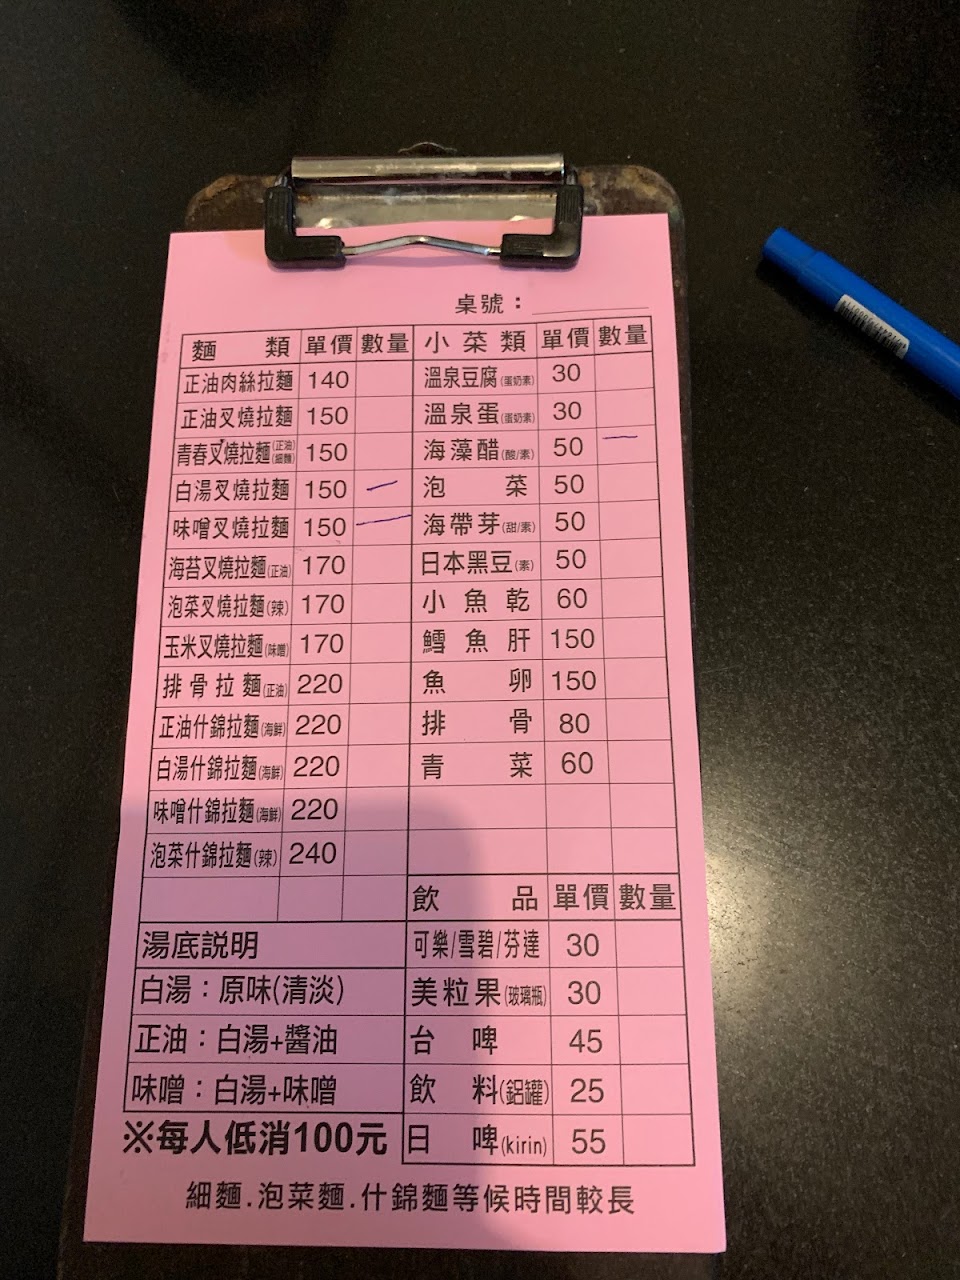 桌號：
麵類 單價 數量 小菜類 單價 數量
正油肉絲拉麵 140 溫泉豆腐(蛋奶素) 30
正油叉燒拉麵 150 溫泉蛋(蛋奶素) 30
青春叉燒拉麵(正油/細麵) 150 海藻醋(酸/素) 50 一
白湯叉燒拉麵 150 一 泡菜 50
味噌叉燒拉麵 150 一 海帶芽(甜/素) 50
海苔叉燒拉麵(正油) 170 日本黑豆(素) 50
泡菜叉燒拉麵(辣) 170 小魚乾 60
玉米叉燒拉麵(味噌) 170 鱈魚肝 150
排骨拉麵(正油) 220 魚卵 150
正油什錦拉麵(海鮮) 220 排骨 80
白湯什錦拉麵(海鮮) 220 青菜 60
味噌什錦拉麵(海鮮) 220
泡菜什錦拉麵(辣) 240
飲品 單價 數量
湯底説明 可樂/雪碧/芬達 30
白湯：原味(清淡) 美粒果(玻璃瓶) 30
正油：白湯+醬油 台啤 45
味噌：白湯+味噌 飲料(鋁罐) 25
※每人低消100元 日啤(kirin) 55
細麵.泡菜麵.什錦麵等候時間較長